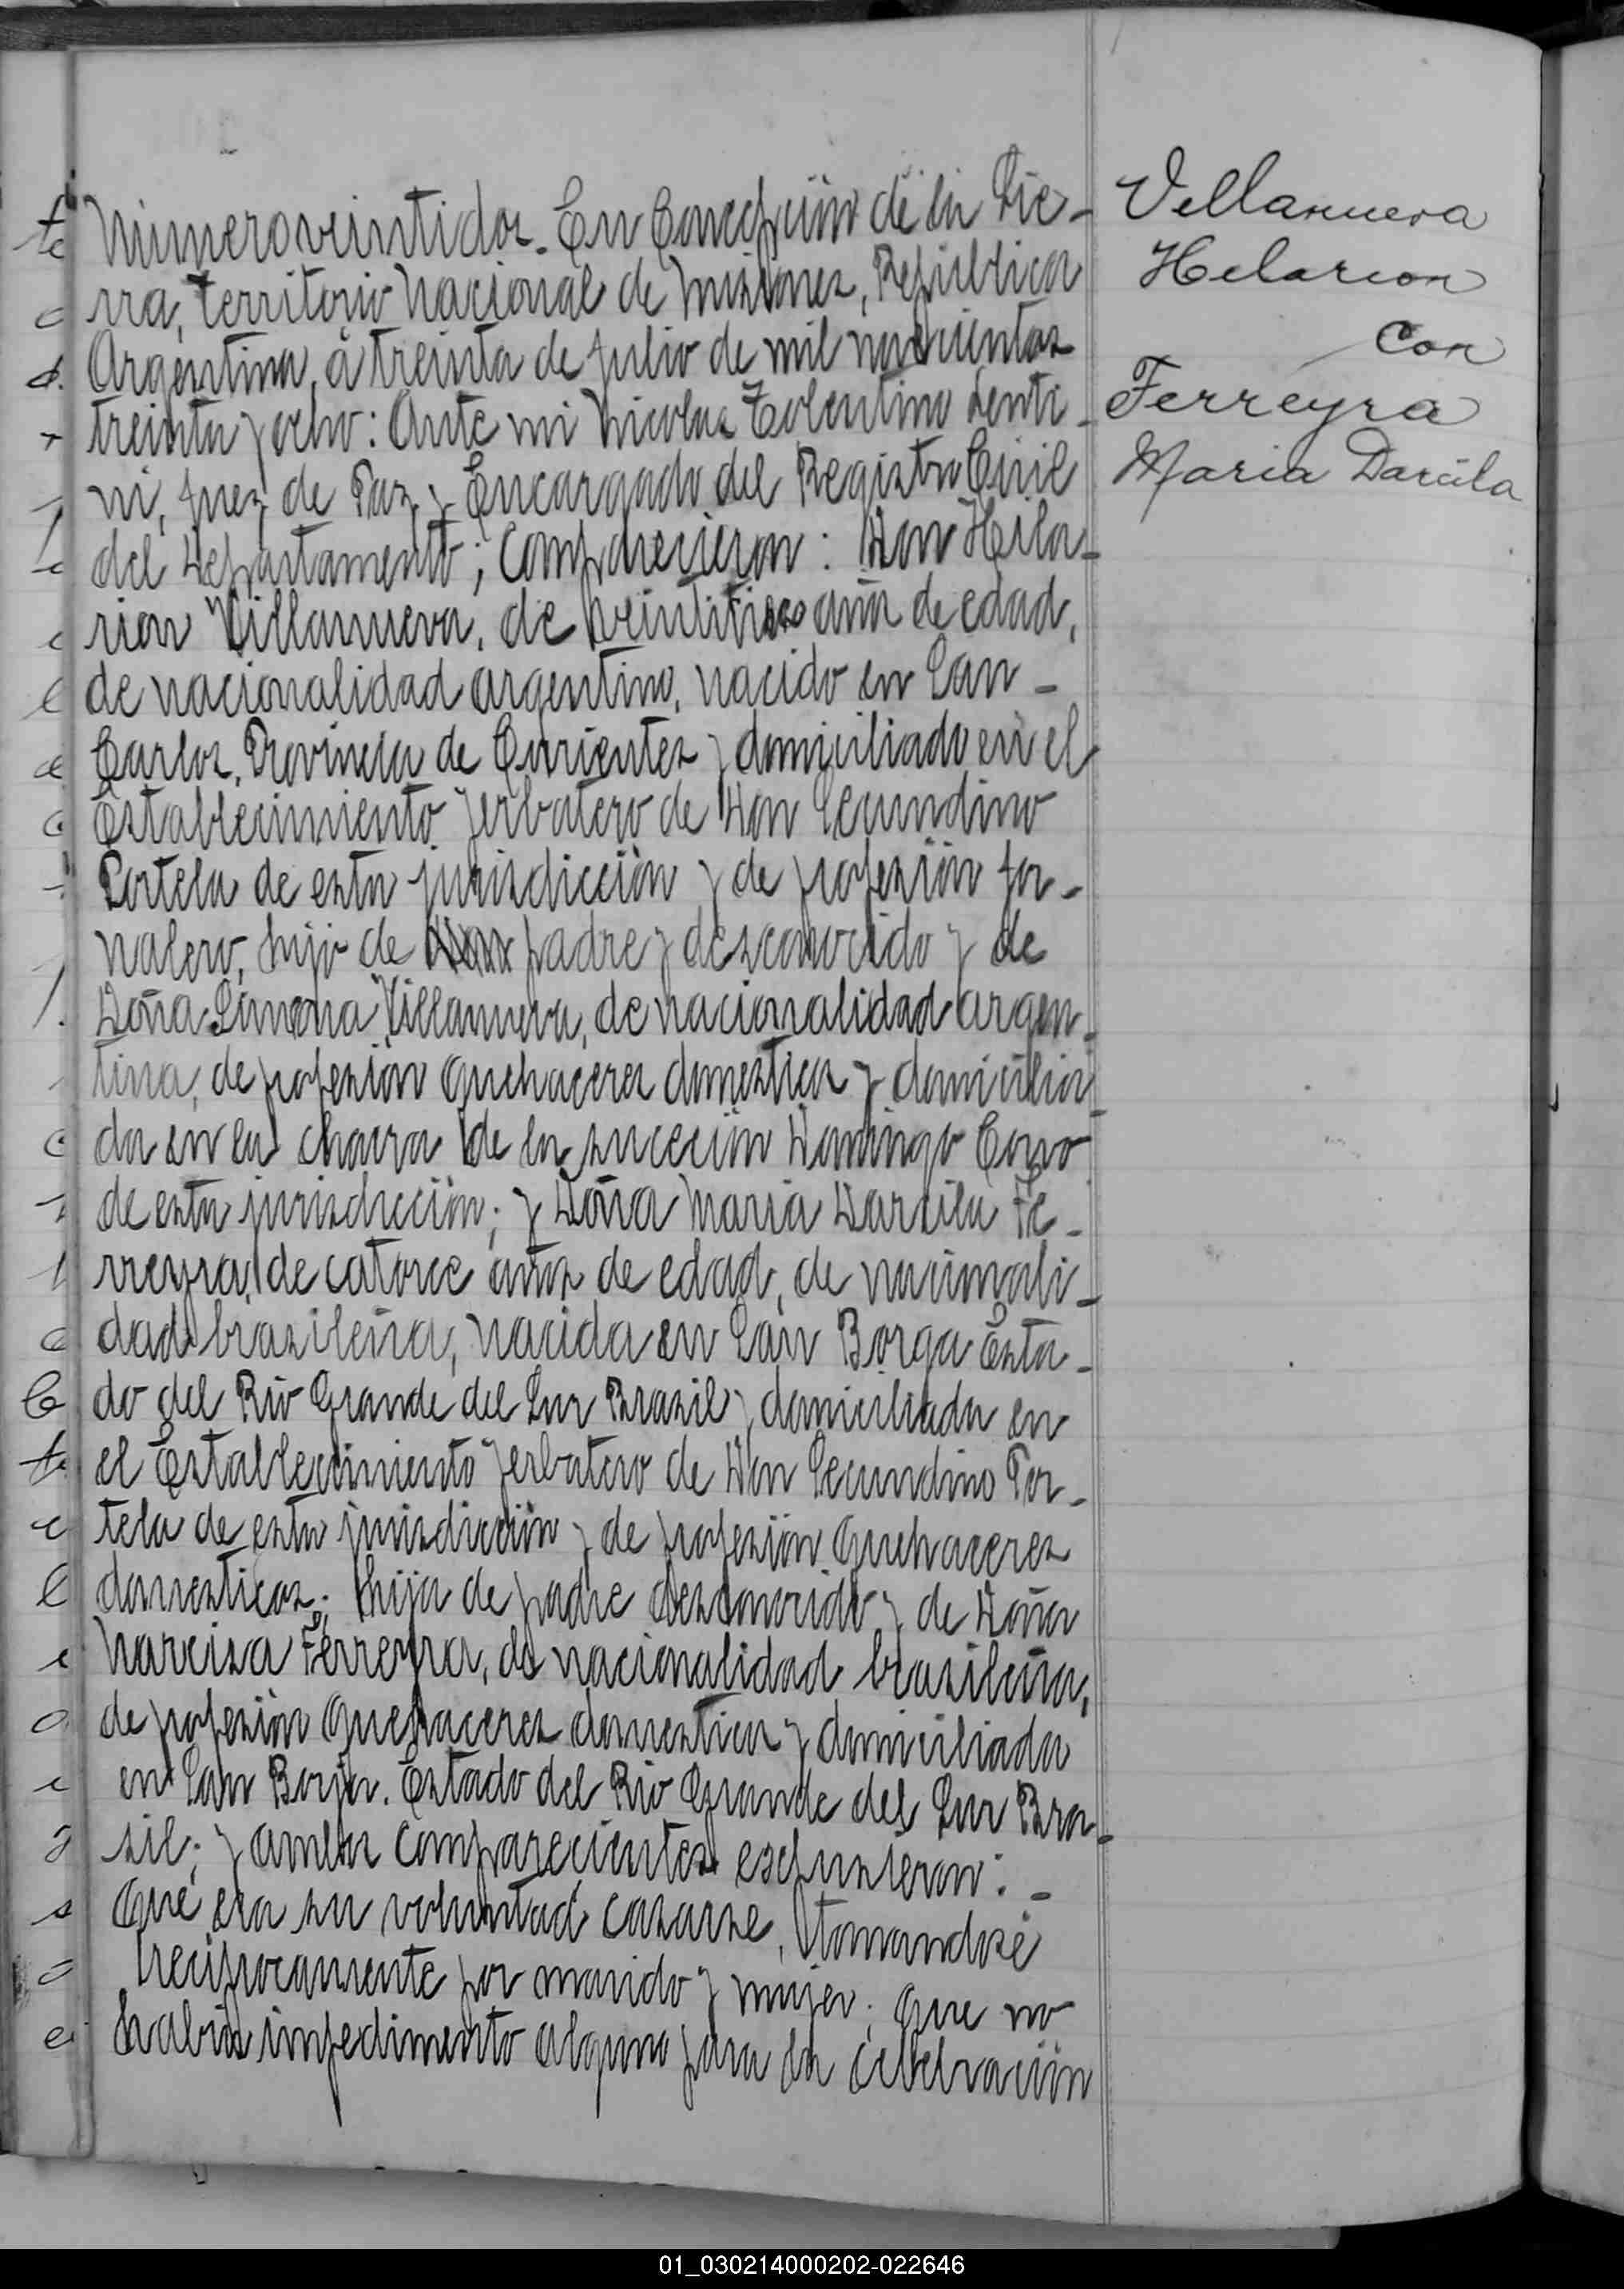 Número veintidos. En Concepción de la Sie-
rra, territorio Nacional de Misiones, República
Argentina, á treinta de Julio de mil novecientos
treinta y ocho: Ante mi Nicolas Tolentino Lenti-
ni, Juez de Paz y Encargado del Registro Civil
del Departamento; Comparecieron: Don Hila-
rion Villanueva, de años de edad,
de nacionalidad argentino, nacido en San-
Carlos, Provincia de Corrientes y domiciliado en el
Establecimiento yerbatero de Don Secundino
Portela de esta jurisdicción y de profesión jor-
nalero, hijo de padre desconocido y de
Doña Villanueva, de nacionalidad argen-
tina, de profesión quehaceres domesticos y domicilia-
da en la chacra de la sucesión Domingo
de esta jurisdicción; y Doña Maria Darcila Fe-
rreyra, de catorce años de edad, de nacionali-
dad brasileña, nacida en San Borga Esta-
do del Rio Grande del Sur Brasil y domiciliada en
el Establecimiento yerbatero de Don Secundino Por-
tela de esta jurisdicción y de profesión quehaceres
domesticos; hija de padre desconocido y de Doña
Narcisa Ferreyra, de nacionalidad brasileña,
de profesión quehaceres domesticos y domiciliada
en San Borja. Estado del Rio Grande del Sur Bra-
sil; y ambos comparecientes expusieron: -
Que era su voluntad casarse, tomandose
reciprocamente por marido y mujer; que no
habia impedimento alguno para la celebración
Villanueva
Helarion
con
Ferreyra
Maria Darcila
01_030214000202-022646